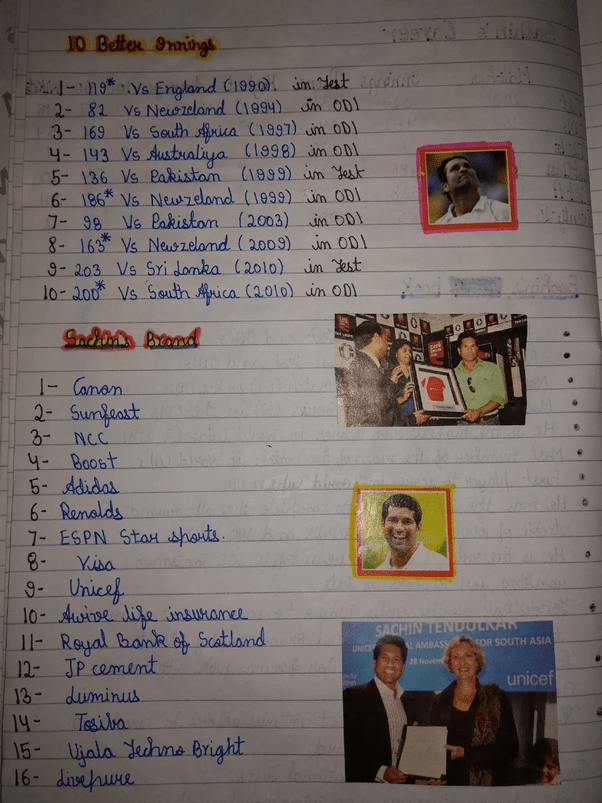 10 Better Innings
1- 119* Vs England (1990). in Test
2- 82 Vs Newzeland (1994) in ODI
3- 169 Vs South Africa (1997) in ODI
4- 143 Vs Australiya (1998) in ODI
5- 136 Vs Pakistan (1999) in Test
6- 186* Vs Newzeland (1999) in ODI
7- 98 Vs Pakistan (2003) in ODI
8- 163* Vs Newzeland (2009) in ODI
9- 203 Vs Sri Lanka (2010) in Test
10- 200* Vs South Africa (2010) in ODI
Sachin's Brand
1- Canan
2- Sunfeast
3- NCC
4- Boost
5- Adidas
6- Renolds
7- ESPN Star sports.
8- Visa
9- Unicef
10- Avive life insurance
11- Royal Bank of Scotland
12- JP cement
13- Luminus
14- Tosiba
15- Ujala Techno Bright
16- Livepure
SACHIN TENDULKAR
UNICEF AMBASSADOR FOR SOUTH ASIA
28 Novem
unicef